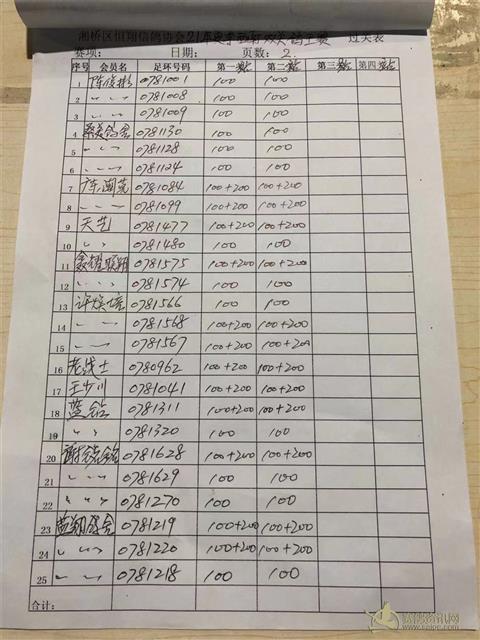 湘桥区恒翔信鸽协会21年 双关鸽王赛 过关表
赛项: 日期: 页数: 2
序号 会员名 足环号码 第一关站 第二关站 第三关站 第四关站
1 陈俊彬 0781001 100 100
2 〃 〃 0781008 100 100
3 〃 〃 0781009 100 100
4 鸽舍 0781130 100 100
5 〃 〃 0781128 100 100
6 〃 〃 0781124 100 100
7 广东 0781084 100+200 100+200
8 〃 〃 0781099 100+200 100+200
9 天艺 0781477 100+200 100+200
10 〃 〃 0781480 100 100
11 鑫耀 翔 0781575 100+200 100+200
12 〃 〃 0781574 100 100
13 许焕 0781566 100 100
14 〃 〃 0781568 100+200 100+200
15 〃 〃 0781567 100+200 100+200
16 老战士 0780962 100+200 100+200
17 王少川 0781041 100+200 100+200
18 蓝钻 0781311 100+200 100+200
19 〃 〃 0781320 100 100
20 谢 0781628 100+200 100+200
21 〃 〃 0781629 100 100
22 〃 〃 0781270 100 100
23 翔鸽舍 0781219 100+200 100+200
24 〃 〃 0781220 100+200 100+200
25 〃 〃 0781218 100 100
合计: